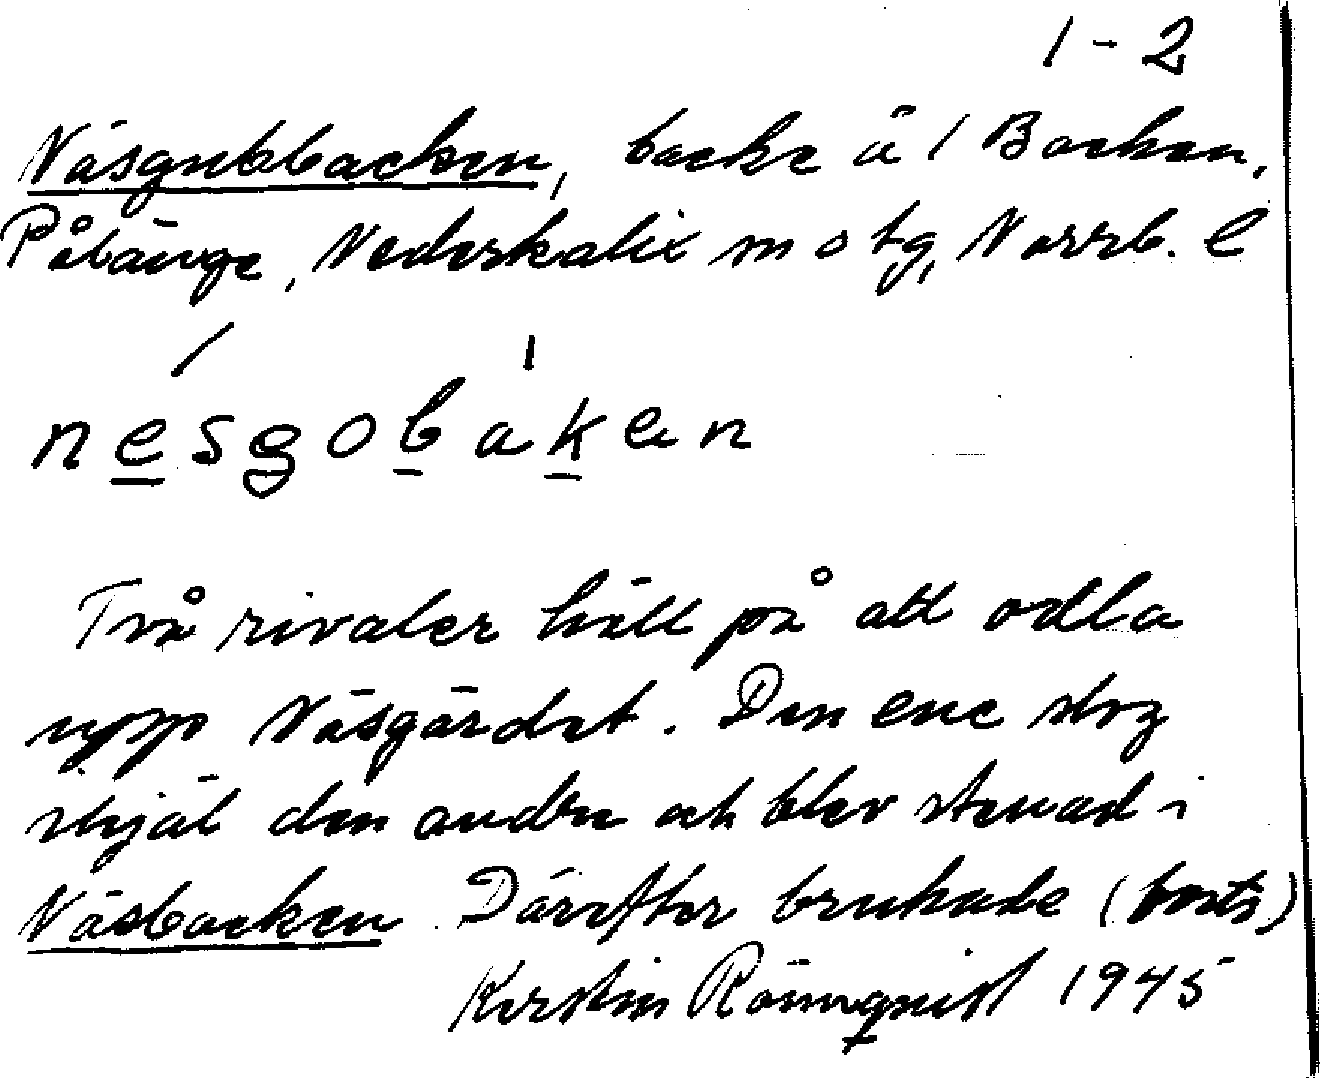 1-2
Näsgubbbacken, backe å 1 Backen,
Påläng​e, Nederkalix m o tg, Norrb. l
nesgobaken
Två rivaler höll på att odla
upp Näsgärdet. Den ene slog
ihjäl den andre och blev stenad i
Näsbacken. Därefter brukade (forts)
Kerstin Rönnquist 1945